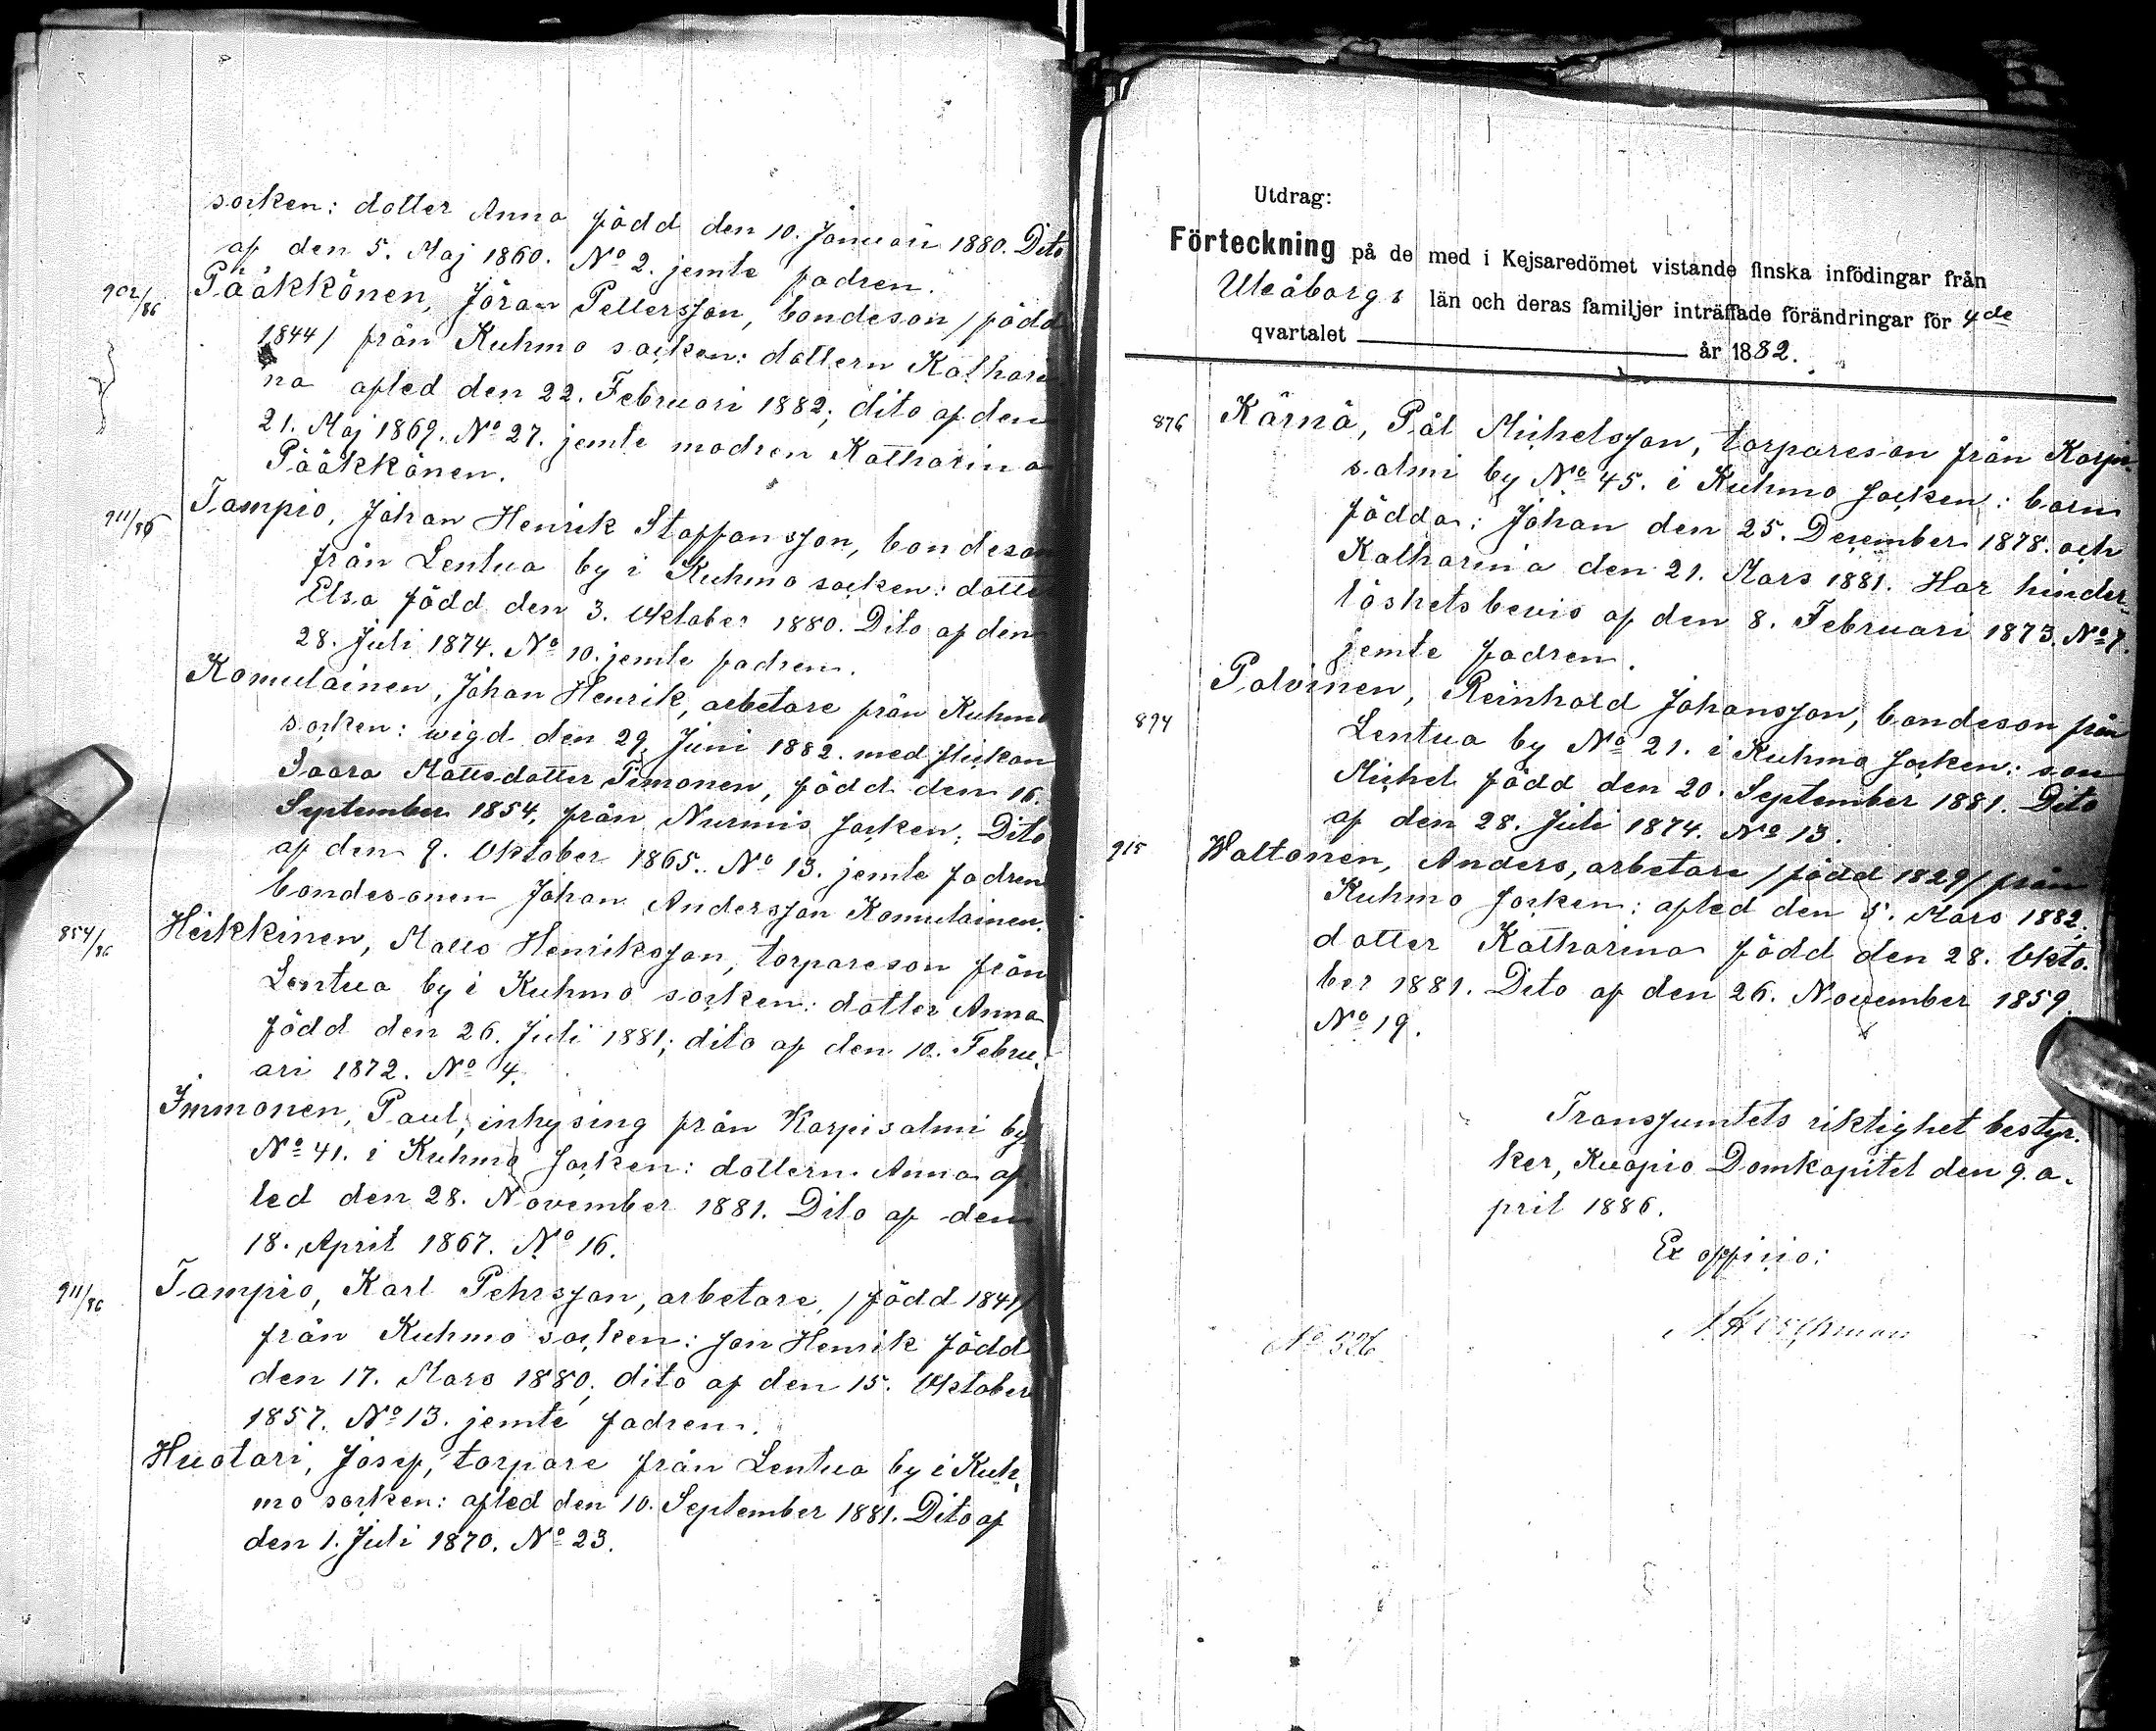 socken: dotter Anna född den 10. Januari 1880. Dito
af den 5. Maj 1860. No 2. jemte fadren.
902/86 Pääkkönen, Jöran Pettersson, bondeson /född
1844/ från Kuhmo socken: dottern Kathari
na afled den 22. Februari 1882; dito af den
21. Maj 1869. No 27. jemte modren Katharina
Pääkkönen.
911/86 Tampio, Johan Henrik Staffansson, bondeson
från Lentua by i Kuhmo socken: dotter
Elsa född den 3. Oktober 1880. Dito af den
28. Juli 1874. No 10. jemte fadren.
Komulainen, Johan Henrik, arbetare från Kuhmo
socken: wigd den 29. Juni 1882. med flickan
Saara Mattsdotter Timonen, född den 16.
September 1854, från Nurmis socken; Dito
af den 9. Oktober 1865. No 13. jemte fadren
bondesonen Johan Andersson Komulainen.
854/86 Heikkinen, Matts Henriksson, torpareson från
Lentua by i Kuhmo socken: dotter Anna
född den 26. Juli 1881; dito af den 10. Febru-
ari 1872. No 4.
Immonen, Paul, inhysing från Korpisalmi by
No 41. i Kuhmo socken: dottern Anna af-
led den 28. November 1881. Dito af den
18. April 1867. No 16.
911/86 Tampio, Karl Pehrsson, arbetare, /född 1841/
från Kuhmo socken: son Henrik född
den 17. Mars 1880; dito af den 15. Oktober
1857. No 13. jemte fadren.
Huotari, Josep, torpare från Lentua by i Kuh-
mo socken: afled den 10. September 1881. Dito af
den 1. Juli 1870. No 23.
Utdrag:
Förteckning på de med i Kejsaredömet vistande finska infödingar från
Uleåborgs län och deras familjer inträffade förändringar för 4de
qvartalet år 1882.
876 Kärnä, Pål Michelsson, torpareson från Korpi-
salmi by No 45. i Kuhmo socken: barn
födda: Johan den 25. December 1878. och
Katharina den 21. Mars 1881. Har hinder-
löshetsbevis af den 8. Februari 1873. No 7.
jemte fadren.
894 Polvinen, Reinhold Johansson, bondeson från
Lentua by No 21. i Kuhmo socken: son
Michel född den 20. September 1881. Dito
af den 28. Juli 1874. No 13.
915 Waltonen, Anders, arbetare /född 1829/ från
Kuhmo socken: afled den 5. Mars 1882;
dotter Katharina född den 28. Okto-
ber 1881. Dito af den 26. November 1859.
No 19.
Transsumtets riktighet bestyr-
ker, Kuopio Domkapitel den 9. a-
pril 1886.
Ex officio:
No 326